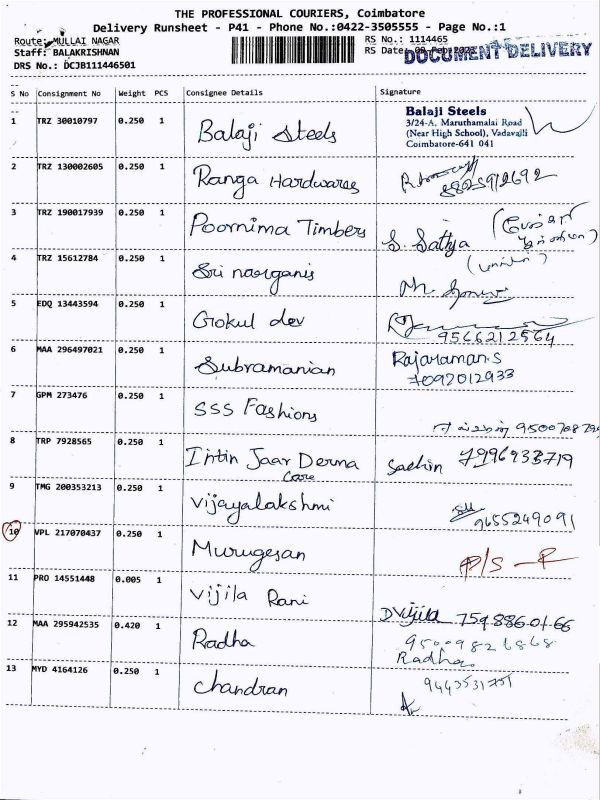 THE PROFESSIONAL COURIERS, Coimbatore
Delivery Runsheet - P41 - Phone No.:0422-3505555 - Page No.:1
Route: MULLAI NAGAR
RS No.: 1114465
Staff: BALAKRISHNAN
RS Date: 09-Feb-2023
DOCUMENT DELIVERY
DRS No.: DCJB111446501
S No Consignment No Weight PCS Consignee Details Signature
1 TRZ 30010797 0.250 1 Balaji Steels
Balaji Steels
3/24-A, Maruthamalai Road
(Near High School), Vadavalli
Coimbatore-641 041
2 TRZ 130002605 0.250 1 Ranga Hardwares
8825912692
3 TRZ 190017939 0.250 1 Poornima Timbers S. Sathya
4 TRZ 15612784 0.250 1 Sri
5 EDQ 13443594 0.250 1 Gokul dev
9566212564
6 MAA 296497021 0.250 1 Subramanian Rajaraman.S
7092012933
7 GPM 273476 0.250 1 SSS Fashions
8 TRP 7928565 0.250 1 Jaar Derma Care Sachin 7996933719
9 TMG 200353213 0.250 1 Vijayalakshmi
9655249091
10 VPL 217070437 0.250 1 Murugesan P/S - R
11 PRO 14551448 0.005 1 Vijila Rani
D Vijila 759 886 01 66
12 MAA 295942535 0.420 1 Radha
9500982 6868
Radha
13 MYD 4164126 0.250 1 Chandran